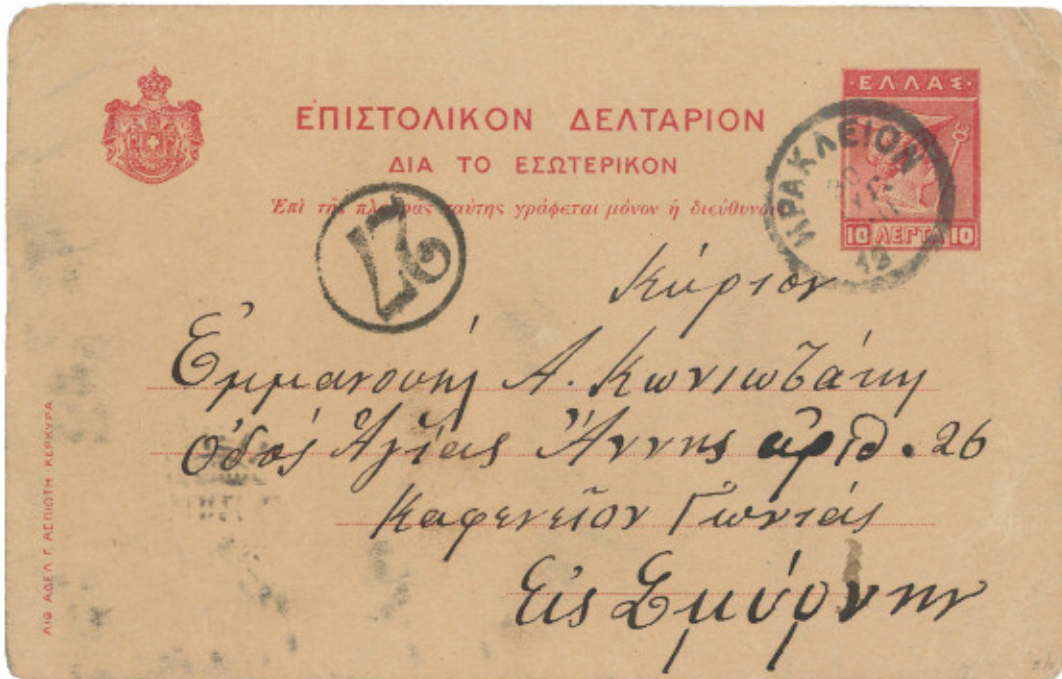 ·ΕΛΛΑΣ·
ΕΠΙΣΤΟΛΙΚΟΝ ΔΕΛΤΑΡΙΟΝ
ΗΡΑΚΛΕΙΟΝ
ΔΙΑ ΤΟ ΕΣΩΤΕΡΙΚΟΝ
Ἐπὶ τῆς πλευρᾶς ταύτης γράφεται μόνον ἡ διεύθυνσις
10 ΛΕΠΤΑ 10
27
Κύριον
Εμμανουήλ Α. Κωνιωτάκη
Ὁδός Ἁγίας Ἄννης ἀριθ. 26
Καφενεῖον Γωνιάς
Εἰς Σμύρνην
ΛΙΘ ΑΔΕΛ Γ ΑΣΠΙΩΤΗ · ΚΕΡΚΥΡΑ